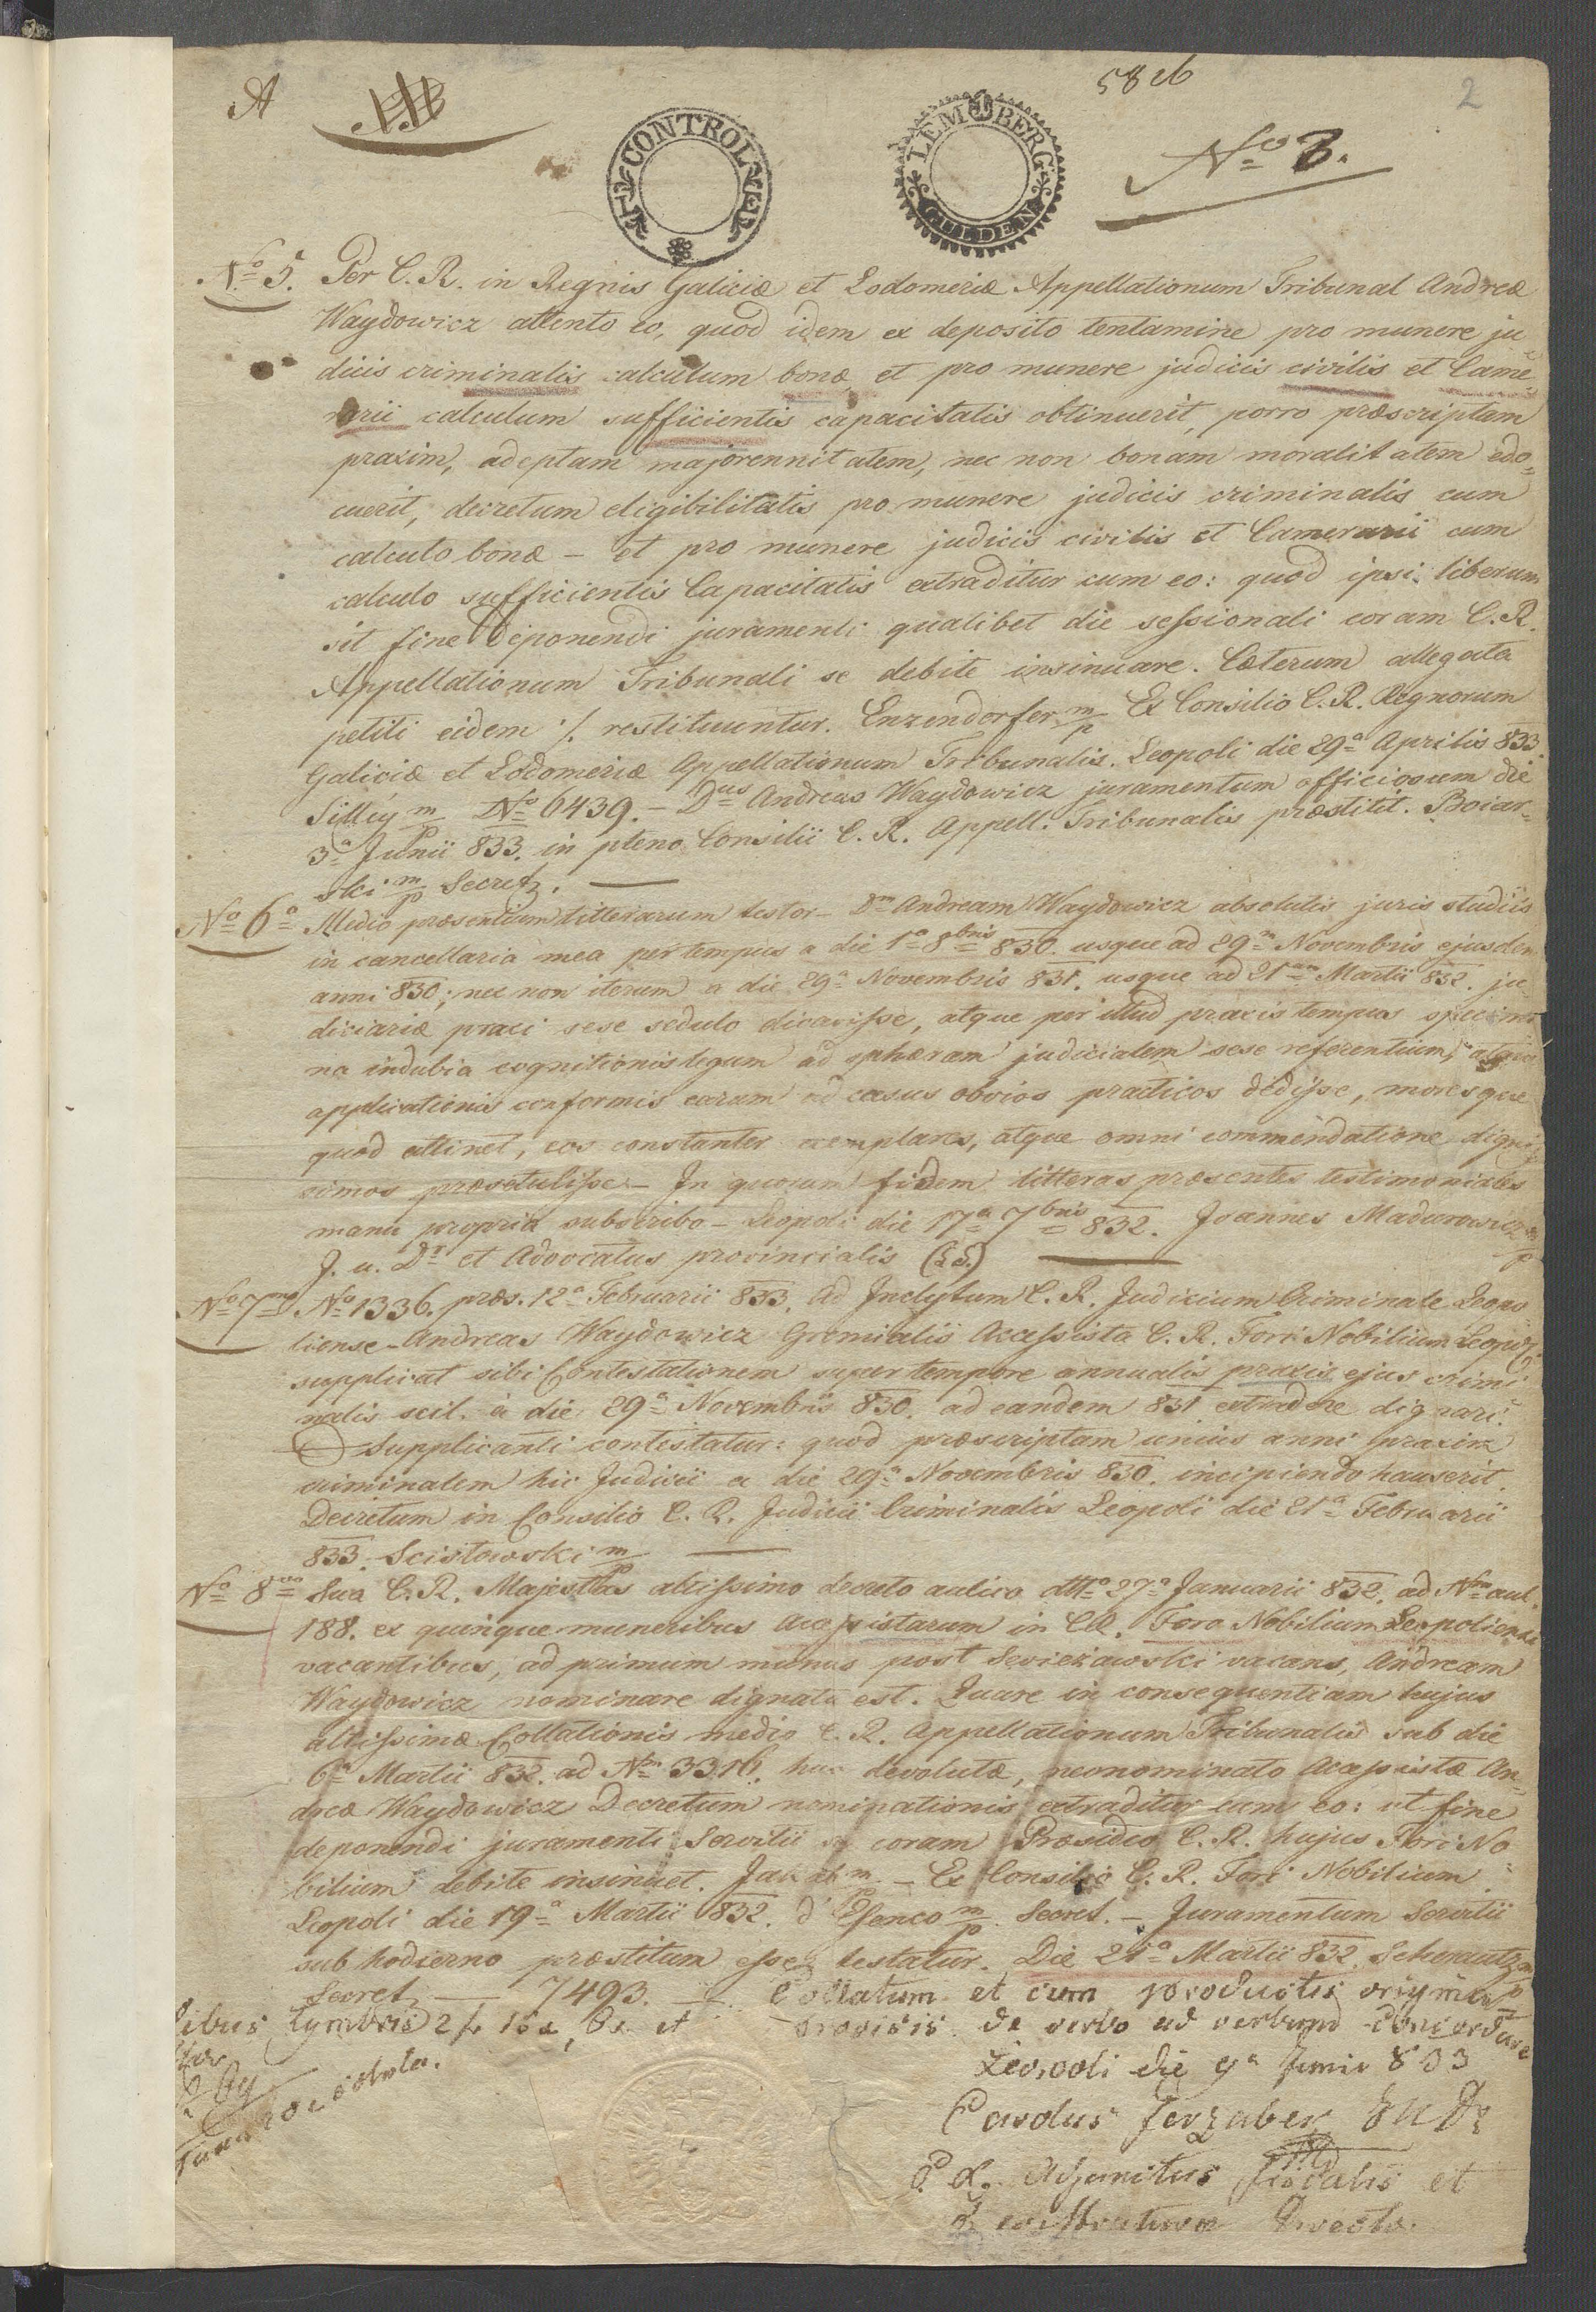 A
58 26
2
CONTROL
LEMBERG
1
GULDEN
No 3.
No 5. Per C. R. in Regnis Galiciæ et Lodomeriæ Appellationum Tribunal Andreæ
Waydowicz attento eo, quod idem ex deposito tentamine pro munere ju-
dicis criminalis calculum bonæ et pro munere judicis civilis et Came-
rarii calculum sufficientis capacitatis obtinuerit, porro præscriptam
praxim, adeptam majorennitatem, nec non bonam moralitatem edo-
cuerit, decretum eligibilitatis pro munere judicis criminalis cum
calculo bonæ – et pro munere judicis civilis et Camerarii cum
calculo sufficientis Capacitatis extraditur cum eo: quod ipsi liberum
sit fine deponendi juramenti qualibet die sessionali coram C. R.
Appellationum Tribunali se debite insinuare. Cæterum allegata
petiti eidem ./. restituuntur. Enzendorfer m/p Ex Consilio C. R. Regnorum
Galiciæ et Lodomeriæ Appellationum Tribunalis. Leopoli die 29a Aprilis 833.
m/p No 6439. – Dnus Andreas Waydowicz juramentum officiosum die
3a Junii 833. in pleno Consilii C. R. Appell. Tribunalis præstitit. Boiar-
ski m/p Secret.
No 6o Medio præsentium litterarum testor – Dm Andream Waydowicz absolutis juris studiis
in cancellaria mea per tempus a die 1a 8bris 830. usque ad 29m Novembris ejusdem
anni 830; nec non iterum a die 29a Novembris 831. usque ad 21am Martii 832. ju-
diciariæ praxi sese sedulo dicavisse, atque per illud praxis tempus specimi-
na indubia cognitionis legum ad sphæram judicialem sese referentium, atque
applicationis conformis earum ad casus obvios practicos dedisse, moresque
quod attinet, eos constanter exemplares, atque omni commendatione dignis-
simos præsetulisse. – In quorum fidem litteras præsentes testimoniales
manu propria subscribo – Leopoli die 17a 7bris 832. Joannes Madurowicz m/p
J. u. Dr et Advocatus provincialis (LS.)
No 7mo No 1336. præs. 12a Februarii 833. Ad Inclytum C. R. Judicium Criminale Leopo-
liense – Andreas Waydowicz Gremialis Accessista C. R. Fori Nobilium Leopol.
supplicat sibi Contestationem super tempore annualis praxis ejus crimi-
nalis scil. a die 29a Novembris 830. ad eandem 831 extradere dignari.
Supplicanti contestatur: quod præscriptam unius anni praxim
criminalem hic Judicii a die 29a Novembris 830. incipiendo hauserit.
Decretum in Consilio C. R. Judicii Criminalis Leopoli die 21a Februarii
833. Scisłowski m/p
No 8vo Sua C. R. Majestas altissimo decreto aulico dtto 27a Januarii 832. ad Nm aul.
188. ex quinque muneribus Accessistarum in CR. Foro Nobilium Leopoliensi
vacantibus, ad primum munus post vacans, Andream
Waydowicz nominare dignata est. Quare in consequentiam hujus
altissimæ Collationis medio C. R. Appellationum Tribunalis sub die
6a Martii 832. ad Nm 3316. huc devolutæ, neonominato Accessistæ An-
dreæ Waydowicz Decretum nominationis extraditur cum eo: ut fine
deponendi juramenti Servitii se coram Præsidio C. R. hujus Fori No-
bilium debite insinuet. m/p – Ex Consilio C. R. Fori Nobilium
Leopoli die 19a Martii 832. m/p Secret. – Juramentum Servitii
sub hodierno præstitum esse testatur. Die 21a Martii 832.
Secret. – 7493. – Collatum et cum productis origina-
libus tymbris 2 f. 15 x, 6 x et provisis de verbo ad verbum concordare
Leopoli die 9a Junii 833
Carolus
Adjunctus Fiscalis et
Registraturæ
Taxa soluta.